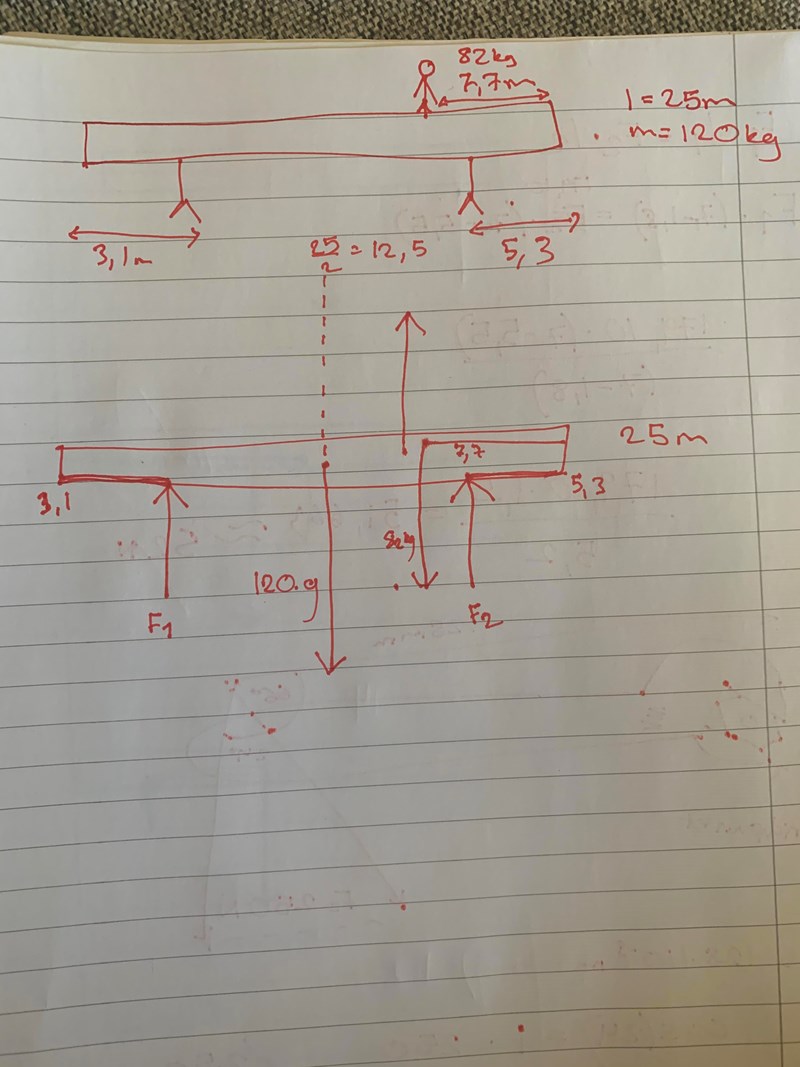 82kg
7,7m
l = 25m
m = 120kg
3,1m
25/2 = 12,5
5,3
25m
7,7
3,1
5,3
82g
120.g
F1
F2